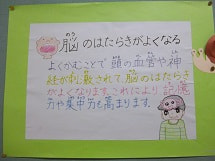 のう
脳のはたらきがよくなる
よくかむことで 顔の血管や神
経が刺激されて、脳のはたらき
がよくなります。これにより 記憶
力や集中力も高まります。